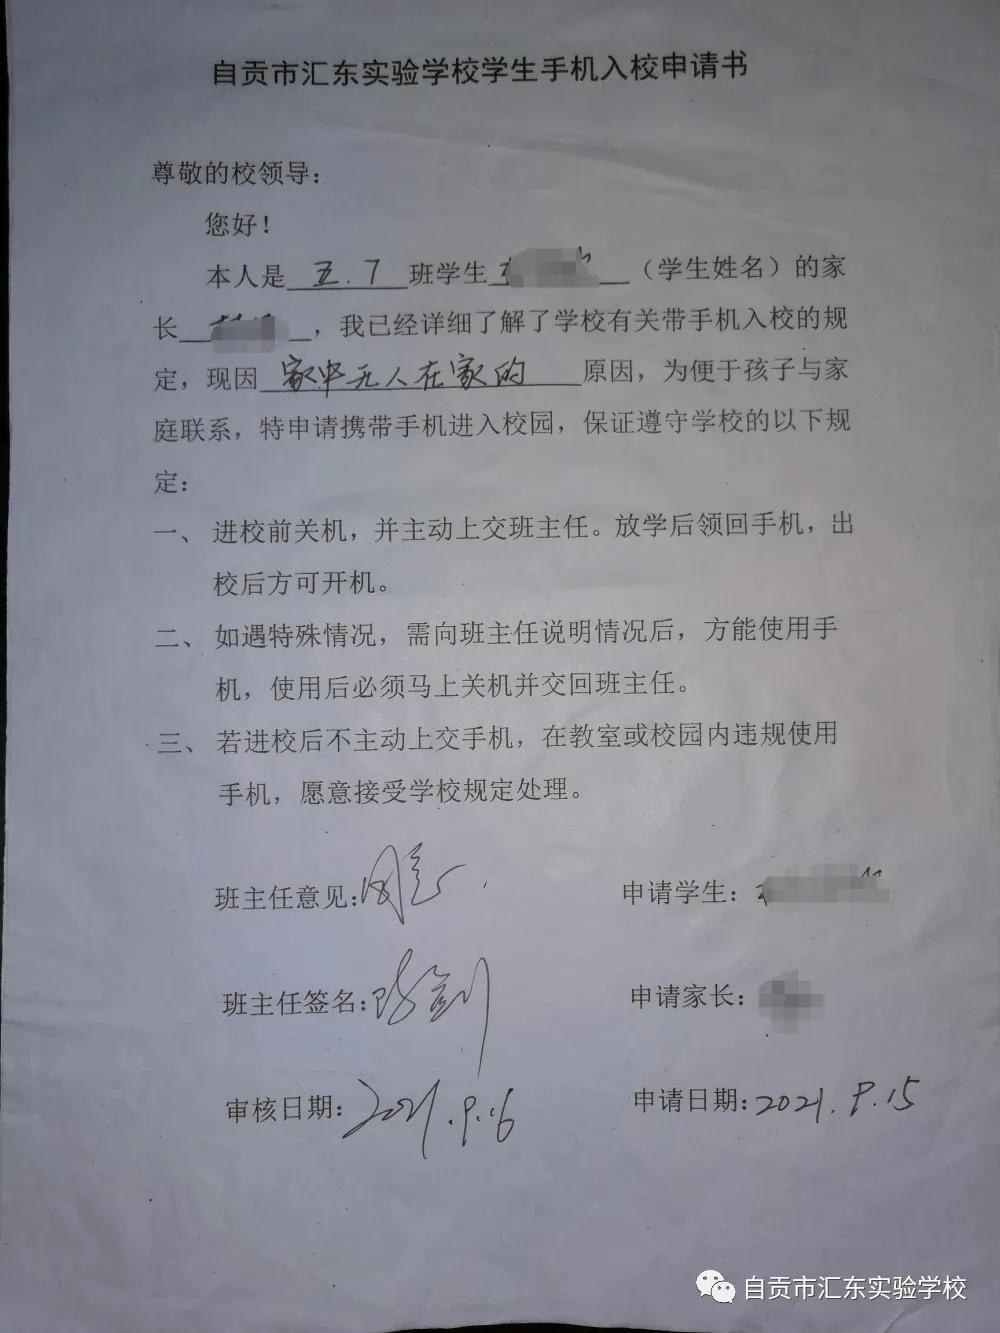 自贡市汇东实验学校学生手机入校申请书
尊敬的校领导：
您好！
本人是 五.7 班学生（学生姓名）的家
长，我已经详细了解了学校有关带手机入校的规
定，现因 家中无人在家的 原因，为便于孩子与家
庭联系，特申请携带手机进入校园，保证遵守学校的以下规
定：
一、进校前关机，并主动上交班主任。放学后领回手机，出
校后方可开机。
二、如遇特殊情况，需向班主任说明情况后，方能使用手
机，使用后必须马上关机并交回班主任。
三、若进校后不主动上交手机，在教室或校园内违规使用
手机，愿意接受学校规定处理。
班主任意见：同意 申请学生：
班主任签名： 申请家长：
审核日期：2021.9.16 申请日期：2021.9.15
自贡市汇东实验学校